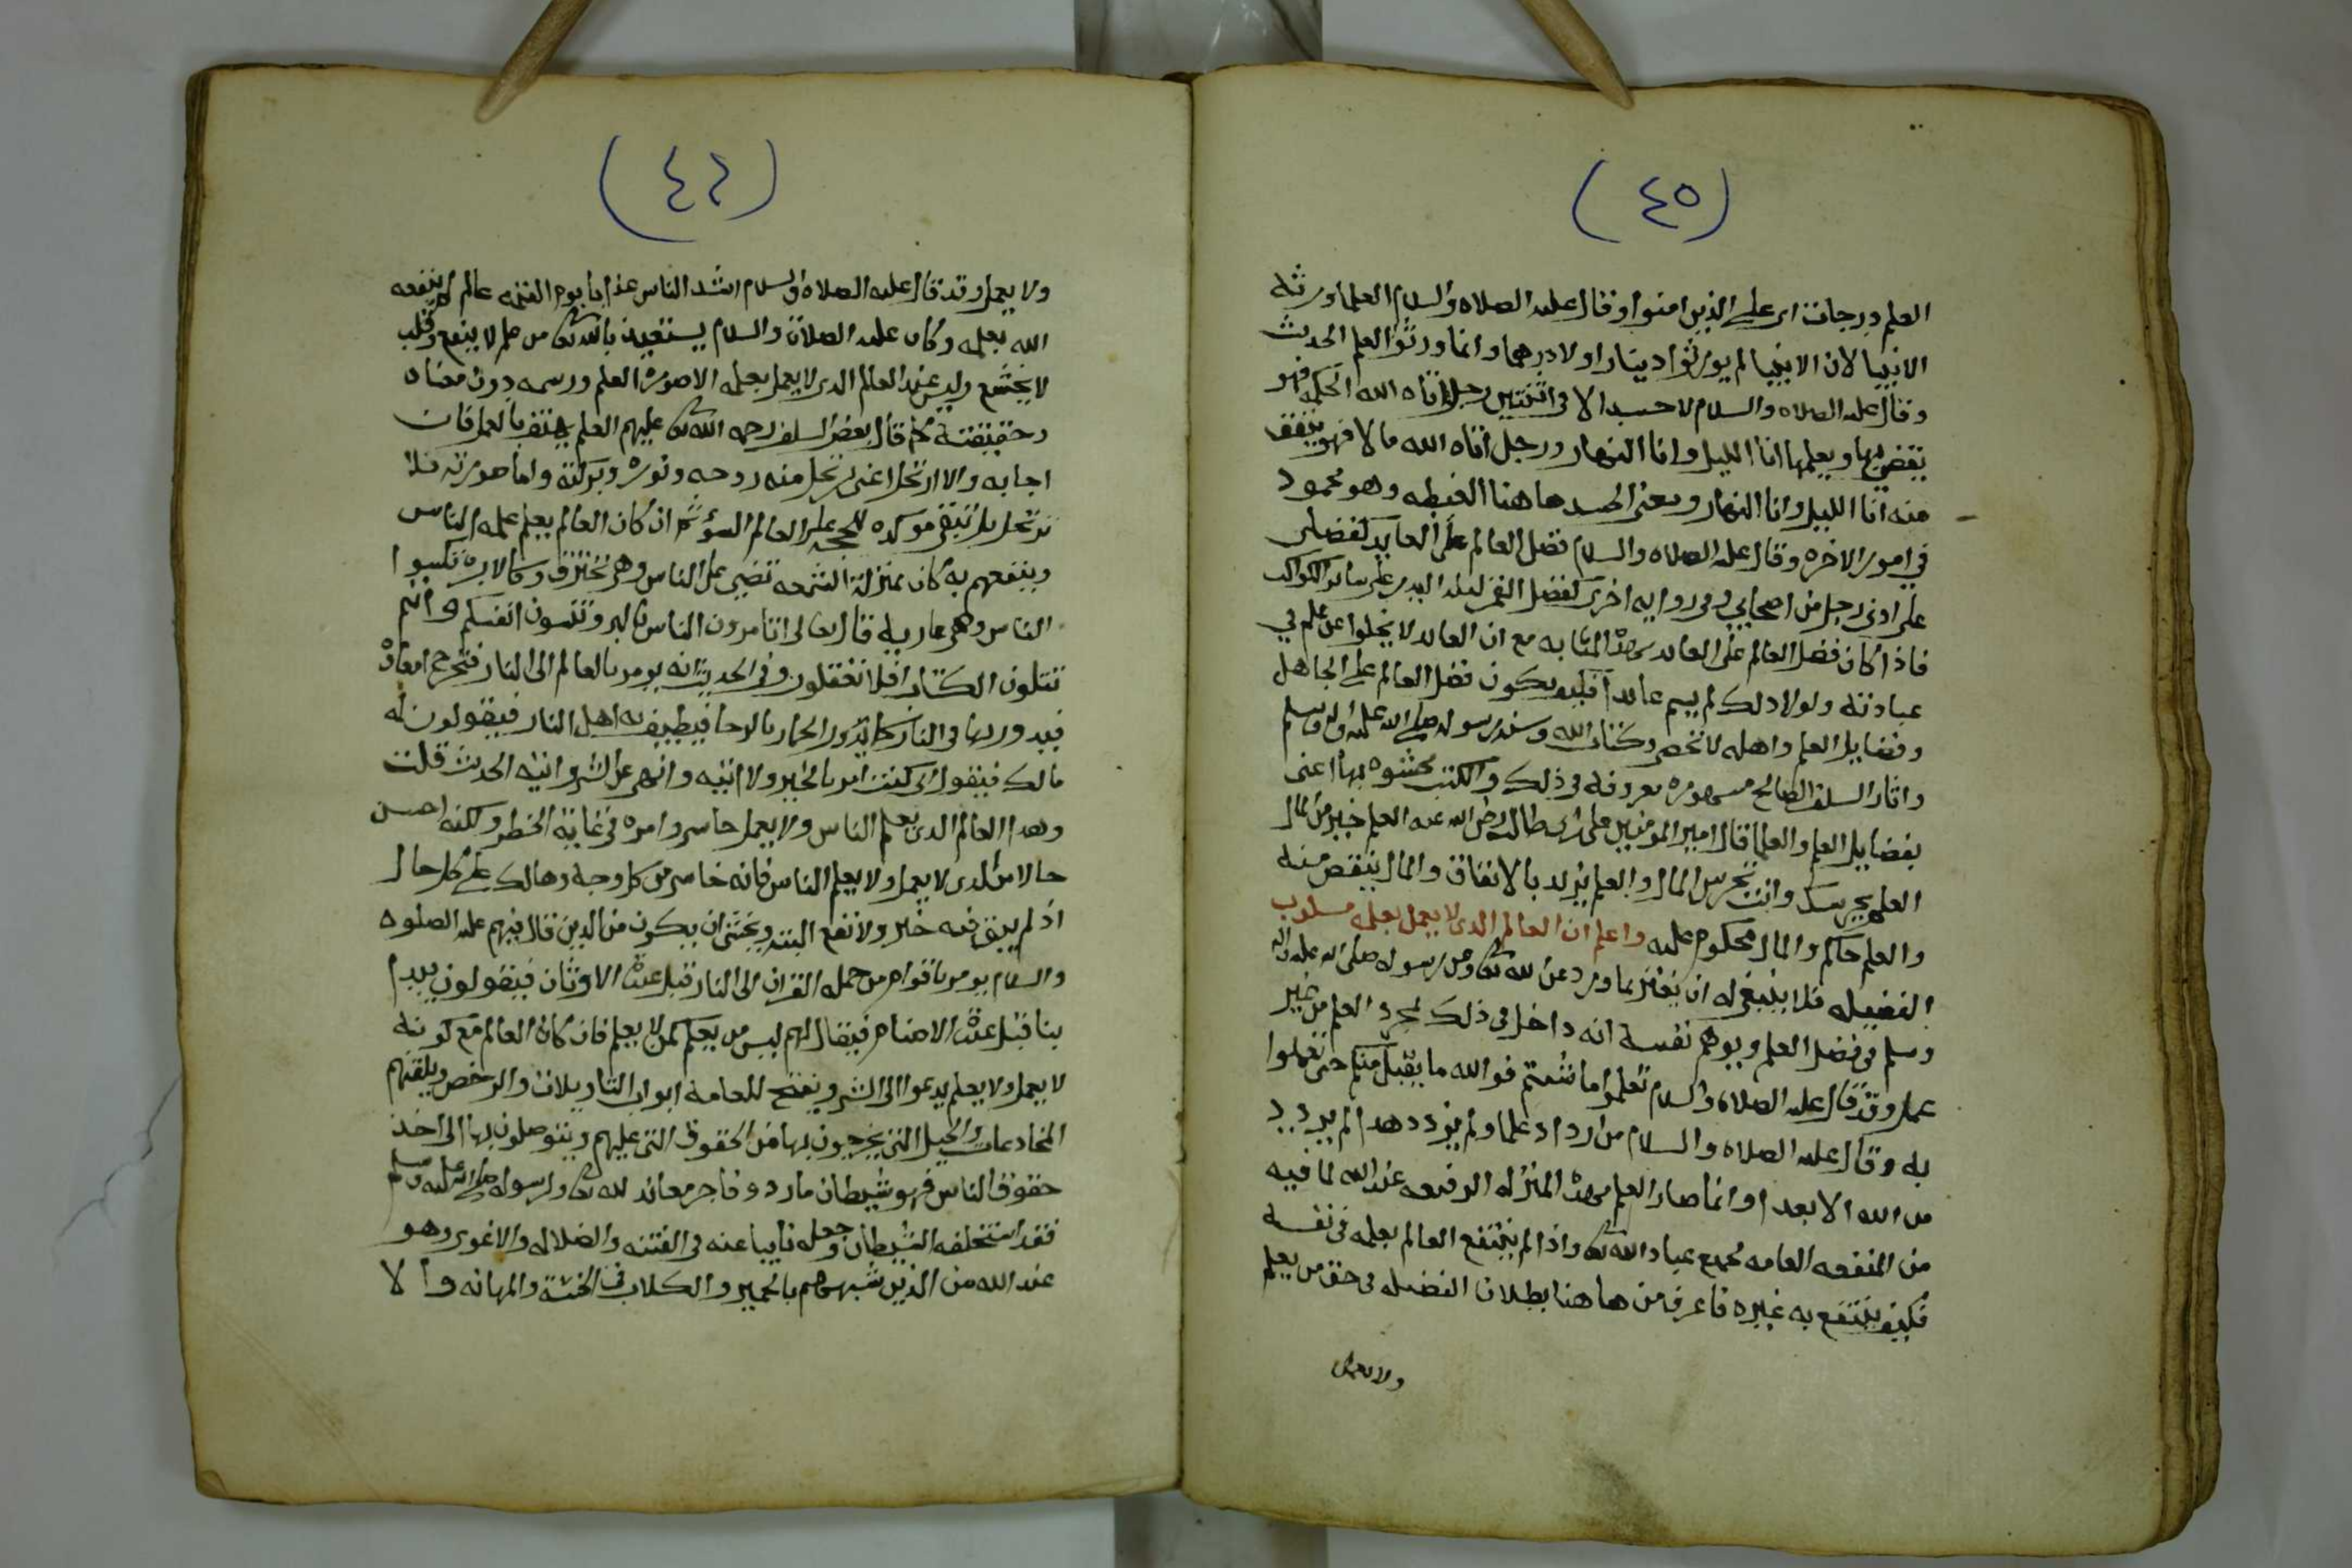 (٤٥)
العلم درجات اي على الذين امنوا وقال عليه الصلاه والسلام العلما ورثة
الانبيا لان الانبيا لم يورثوا دينارا ولا درهما وانما ورثوا العلم الحديث
وقال عليه الصلاه والسلام لا حسد الا في اثنتين رجل اتاه الله الحكمه فهو
يقضي بها ويعلمها انا الليل وانا النهار ورجل اتاه الله مالا فهو ينفق
منه انا الليل وانا النهار ومعنى الحسد هاهنا الغبطه وهو محمود
في امور الاخره وقال عليه الصلاه والسلام فضل العالم على العابد كفضلي
على ادنى رجل من اصحابي وفي روايه اخرى كفضل القمر ليله البدر على ساير الكواكب
فاذا كان فضل العالم على العابد بهذه المثابه مع ان العابد لا يخلوا عن علم في
عبادته ولولا ذلك لم يسم عابدا فكيف يكون فضل العالم على الجاهل
وفضايل العلم واهله لا تنحصر وكتاب الله وسنه رسوله صلى الله عليه واله وسلم
واثار السلف الصالح مشهوره معروفه في ذلك والكتب محشوه بها اعنى
بفضايل العلم والعلما قال امير المومنين علي بن ابي طالب رضي الله عنه العلم خير من المال
العلم يحرسك وانت تحرس المال والعلم يزيد بالانفاق والمال ينقص منه
والعلم حاكم والمال محكوم عليه واعلم ان العالم الذى لا يعمل بعلمه مسلوب
الفضيله فلا ينبغي له ان يغتر بما ورد عن الله تعالى وعن رسوله صلى الله عليه واله
وسلم في فضل العلم ويوهم نفسه انه داخل في ذلك بمجرد العلم من غير
عمل وقد قال عليه الصلاه والسلام تعلموا ما شئتم فوالله ما يقبل منكم حتى تعملوا
به وقال عليه الصلاه والسلام من ازداد علما ولم يزدد هدا لم يزدد
من الله الا بعدا وانما صار العلم بهذه المنزله الرفيعه عند الله لما فيه
من المنفعه العامه لجميع عباد الله تعالى واذا لم ينتفع العالم بعلمه في نفسه
فكيف ينتفع به غيره فاعرف من هاهنا بطلان الفضيله في حق من يعلم
ولا يعمل
(٤٤)
ولا يعمل وقد قال عليه الصلاه والسلام اشد الناس عذابا يوم القيمه عالم لم ينفعه
الله بعلمه وكان عليه الصلاة والسلام يستعيذ بالله تعالى من علم لا ينفع وقلب
لا يخشع وليس عند العالم الذى لا يعمل بعلمه الا صورة العلم ورسمه دون معناه
وحقيقته كما قال بعض السلف رحمه الله تعالى عليهم العلم يهتف بالعمل فان
اجابه والا ارتحل اعنى ارتحل منه روحه ونوره وبركته واما صورته فلا
ترتحل بل تبقى موكده للحجه على العالم السوء ثم ان كان العالم يعلم علمه الناس
وينفعهم به كان بمنزلة الشمعه تضي على الناس وهي تحترق وكالابره تكسوا
الناس وهي عاريه قال تعالى اتامرون الناس بالبر وتنسون انفسكم وانتم
تتلون الكتاب افلا تعقلون وفي الحديث انه يومر بالعالم الى النار فتخرج امعاؤه
فيدور بها في النار كما يدور الحمار بالرحا فيطيف به اهل النار فيقولون له
مالك فيقول اني كنت امر بالخير ولا اتيه وانهى عن الشر واتيه الحديث قلت
وهذا العالم الذى يعلم الناس ولا يعمل خاسر وامره في غاية الخطر ولكنه احسن
حالا من الذى لا يعمل ولا يعلم الناس فانه خاسر من كل وجه وهالك على كل حال
اذ لم يبق فيه خير ولا نفع البته ويخشى ان يكون من الذين قال فيهم عليه الصلوه
والسلام يومر باقوام من حمله القران الى النار قبل عبدة الاوثان فيقولون يبدا
بنا قبل عبدة الاصنام فيقال لهم ليس من يعلم كمن لا يعلم فان كان العالم مع كونه
لا يعمل ولا يعلم يدعوا الى الشر ويفتح للعامه ابواب التاويلات والرخص ويلقنهم
المخادعات والحيل التى يخرجون بها من الحقوق التى عليهم ويتوصلون بها الى اخذ
حقوق الناس فهو شيطان مارد وفاجر معاند لله تعالى ولرسوله صلى الله عليه وسلم
فقد استخلفه الشيطان وجعله نايبا عنه في الفتنه والضلاله والاغوى وهو
عند الله من الذين شبههم بالحمير والكلاب في الخسة والمهانه والا